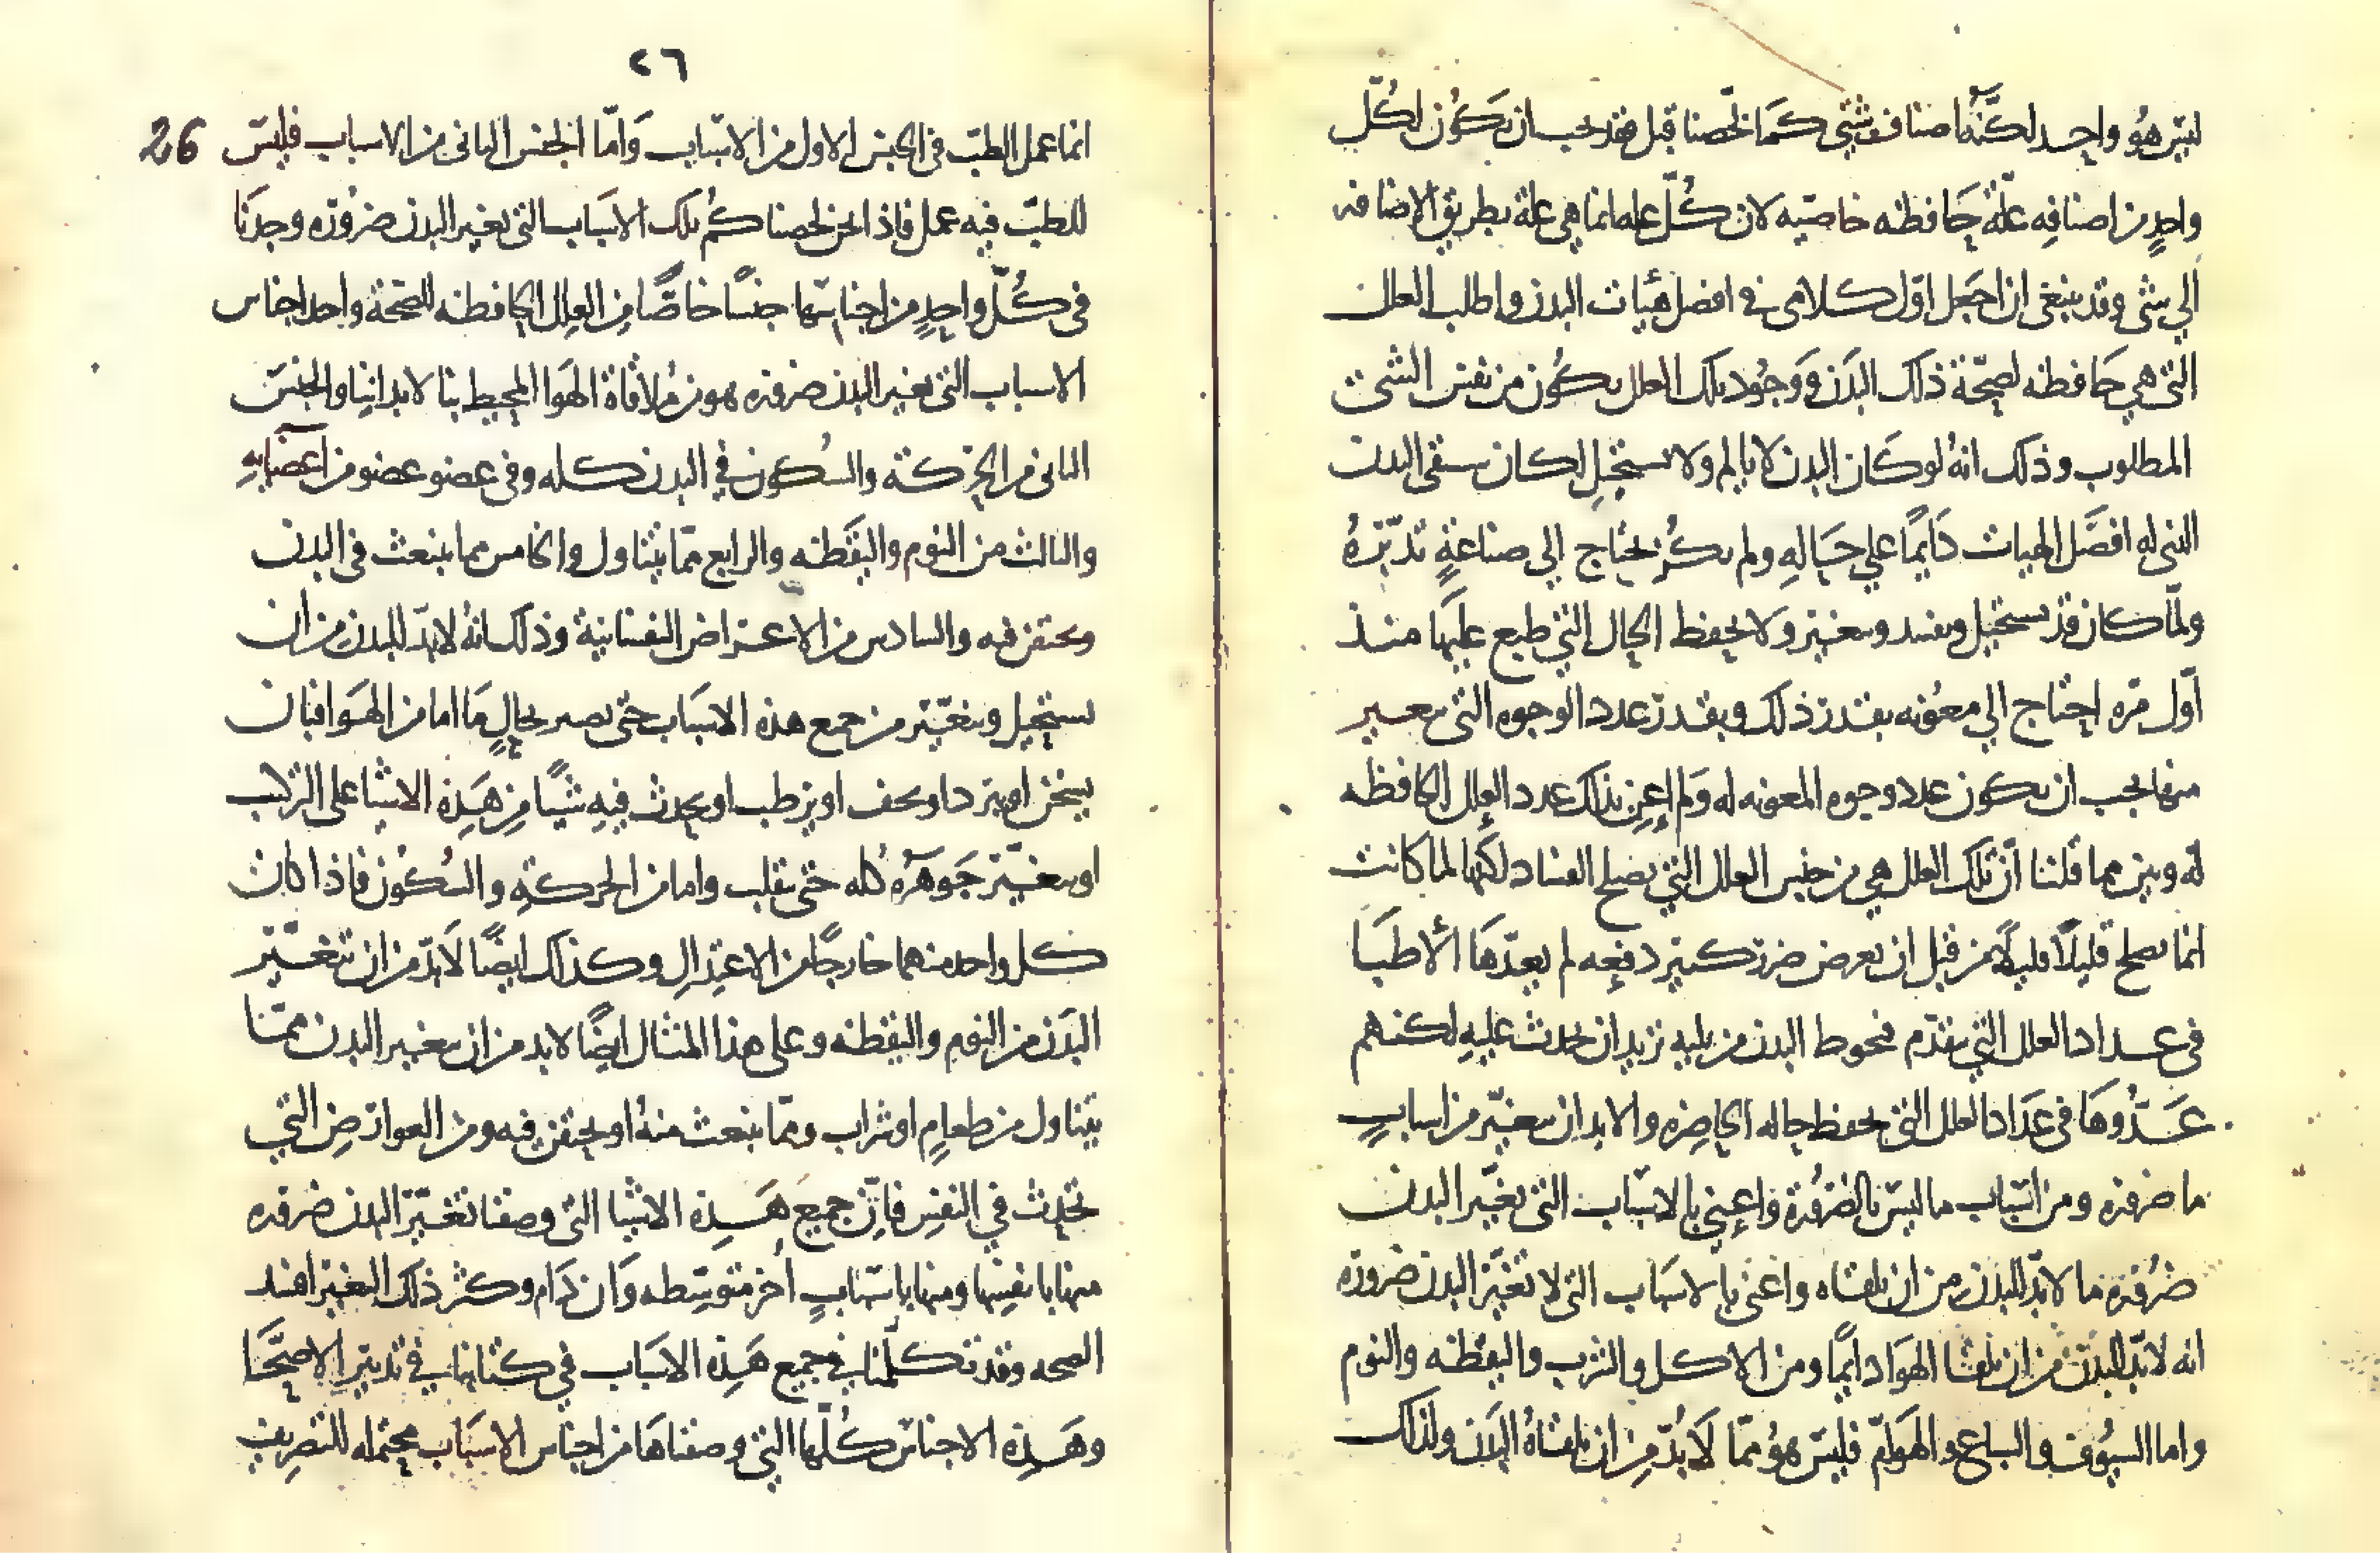 ليس هو واحد لكنّه اصناف شتى كما لخّصنا قبل فقد يجب ان يكون لكلّ
واحدٍ من اصنافه علّة حافظه خاصّيه لان كلّ عله انما هي علة بطريق الاضافه
الي شى وقد ينبغى ان اجعل اوّل كلامى فى افضل هيات البدن واطلب العلل
التى هي حافظه لصحّة ذلك البدن ووجود تلك العلل يكون من نفس الشئ
المطلوب وذلك انهُ لو كان البدن لا يالم ولا يستحيل لكان سيبقى البدن
الذى له افضل الهيات دايمًا على حاله ولم يكن يحتاج الى صناعةٍ تدبّرهُ
ولمّا كان قد يستحيل ويفسد ويتغير ولا يحفظ الحال التى طبع عليها منذ
اوّل مره احتاج الي معونه بقدر ذلك وبقدر عدد الوجوه التى يتغير
منها يجب ان يكون عدد وجوه المعونه له ولم اعن بذلك عدد العلل الحافظه
له وبين مما قلنا انّ تلك العلل هي من جنس العلل التي تصلح الفساد لكنها لما كانت
انما تصلح قليلًا قليلًا من قبل ان يعرض ضرر كبير دفعه لم يعدّها الاطبا
فى عداد العلل التي تتقدّم فتحوط البدن من بليه تريد ان تحدث عليه لكنهم
عدّوها فى عداد العلل التى تحفظ حاله الحاضره والابدان تتغيّر من اسبابٍ
ما ضروره ومن اسباب ما ليس بالضروره واعنى بالاسباب التى تغيّر البدن
ضروره ما لا بدّ للبدن من ان يلقاه واعنى بالاسباب التى لا تغيّر البدن ضروره
انه لا بدّ للبدن من ان يلقا الهوا دايمًا ومن الاكل والشرب واليقظه والنوم
واما السيوف والسباع والهوامّ فليس هو ممّا لا بدّ من ان يلقاهُ البدن ولذلك
٢٦
26
انما عمل الطبّ فى الجنس الاول من الاسباب وامّا الجنس الثانى من الاسباب فليس
للطبّ فيه عمل فاذا نحن لخصنا كم تلك الاسباب التى تغير البدن ضروره وجدنا
فى كلّ واحدٍ من اجناسها جنسًا خاصًّا من العلل الحافظه للصحّة واحد اجناس
الاسباب التى تغير البدن ضروره هو من مُلاقاة الهوا المحيط بنا لابداننا والجنس
الثانى من الحركة والسكون في البدن كله وفى عضو عضو من اعضايه
والثالث من النوم واليقظه والرابع ممّا يتناول والخامس مما ينبعث فى البدن
ويحتقن فيه والسادس من الاعراض النفسانية وذلك انهُ لا بدّ للبدن من ان
يستحيل ويتغيّر من جميع هذه الاسباب حتى يصير بحالٍ ما اما من الهوا فبان
يسخن او يبرد او يجف او يرطب او يحدث فيه شيًا من هذه الاشيا على التركيب
او يتغيّر جوهره كله حتى ينقلب واما من الحركة والسكون فاذا كان
كل واحد منهما خارجًا من الاعتدال وكذلك ايضًا لا بدّ من ان يتغيّر
البدن من النوم واليقظه وعلى هذا المثال ايضًا لا بد من ان يتغير البدن ممّا
يتناول من طعامٍ او شراب وممّا ينبعث منهُ او يحتقن فيه ومن العوارض التي
تحدث في النفس فانّ جميع هذه الاشيا التى وصفنا تغيّر البدن ضروره
منها بانفسها ومنها باسبابٍ أُخر متوسّطه وان دام وكثر ذلك التغير افسد
الصحه وقد تكلّمنا فى جميع هذه الاسباب في كتابنا فى تدبير الاصحّا
وهذه الاجناس كلّها التى وصفناها من اجناس الاسباب محتمله للتصريف